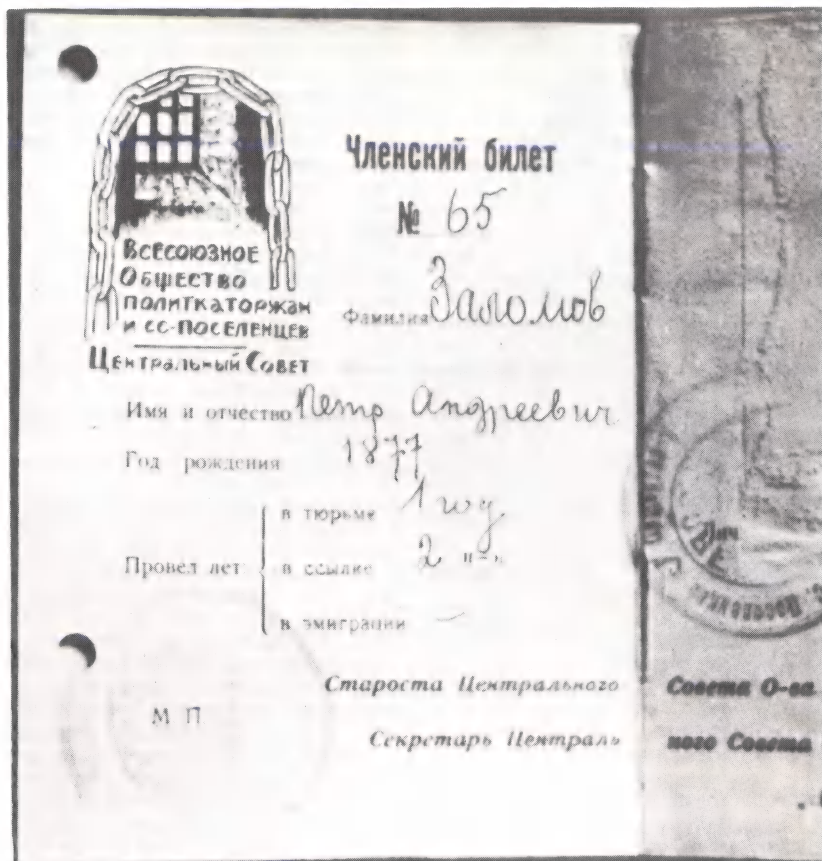 Членский билет
№ 65
Всесоюзное
Общество
политкаторжан
и сс-поселенцев
Центральный Совет
Фамилия Заломов
Имя и отчество Петр Андреевич
Год рождения 1877
Провел лет:
в тюрьме 1 год
в ссылке 2 "-"
в эмиграции —
Староста Центрального Совета О-ва
М П
Секретарь Централь ного Совета